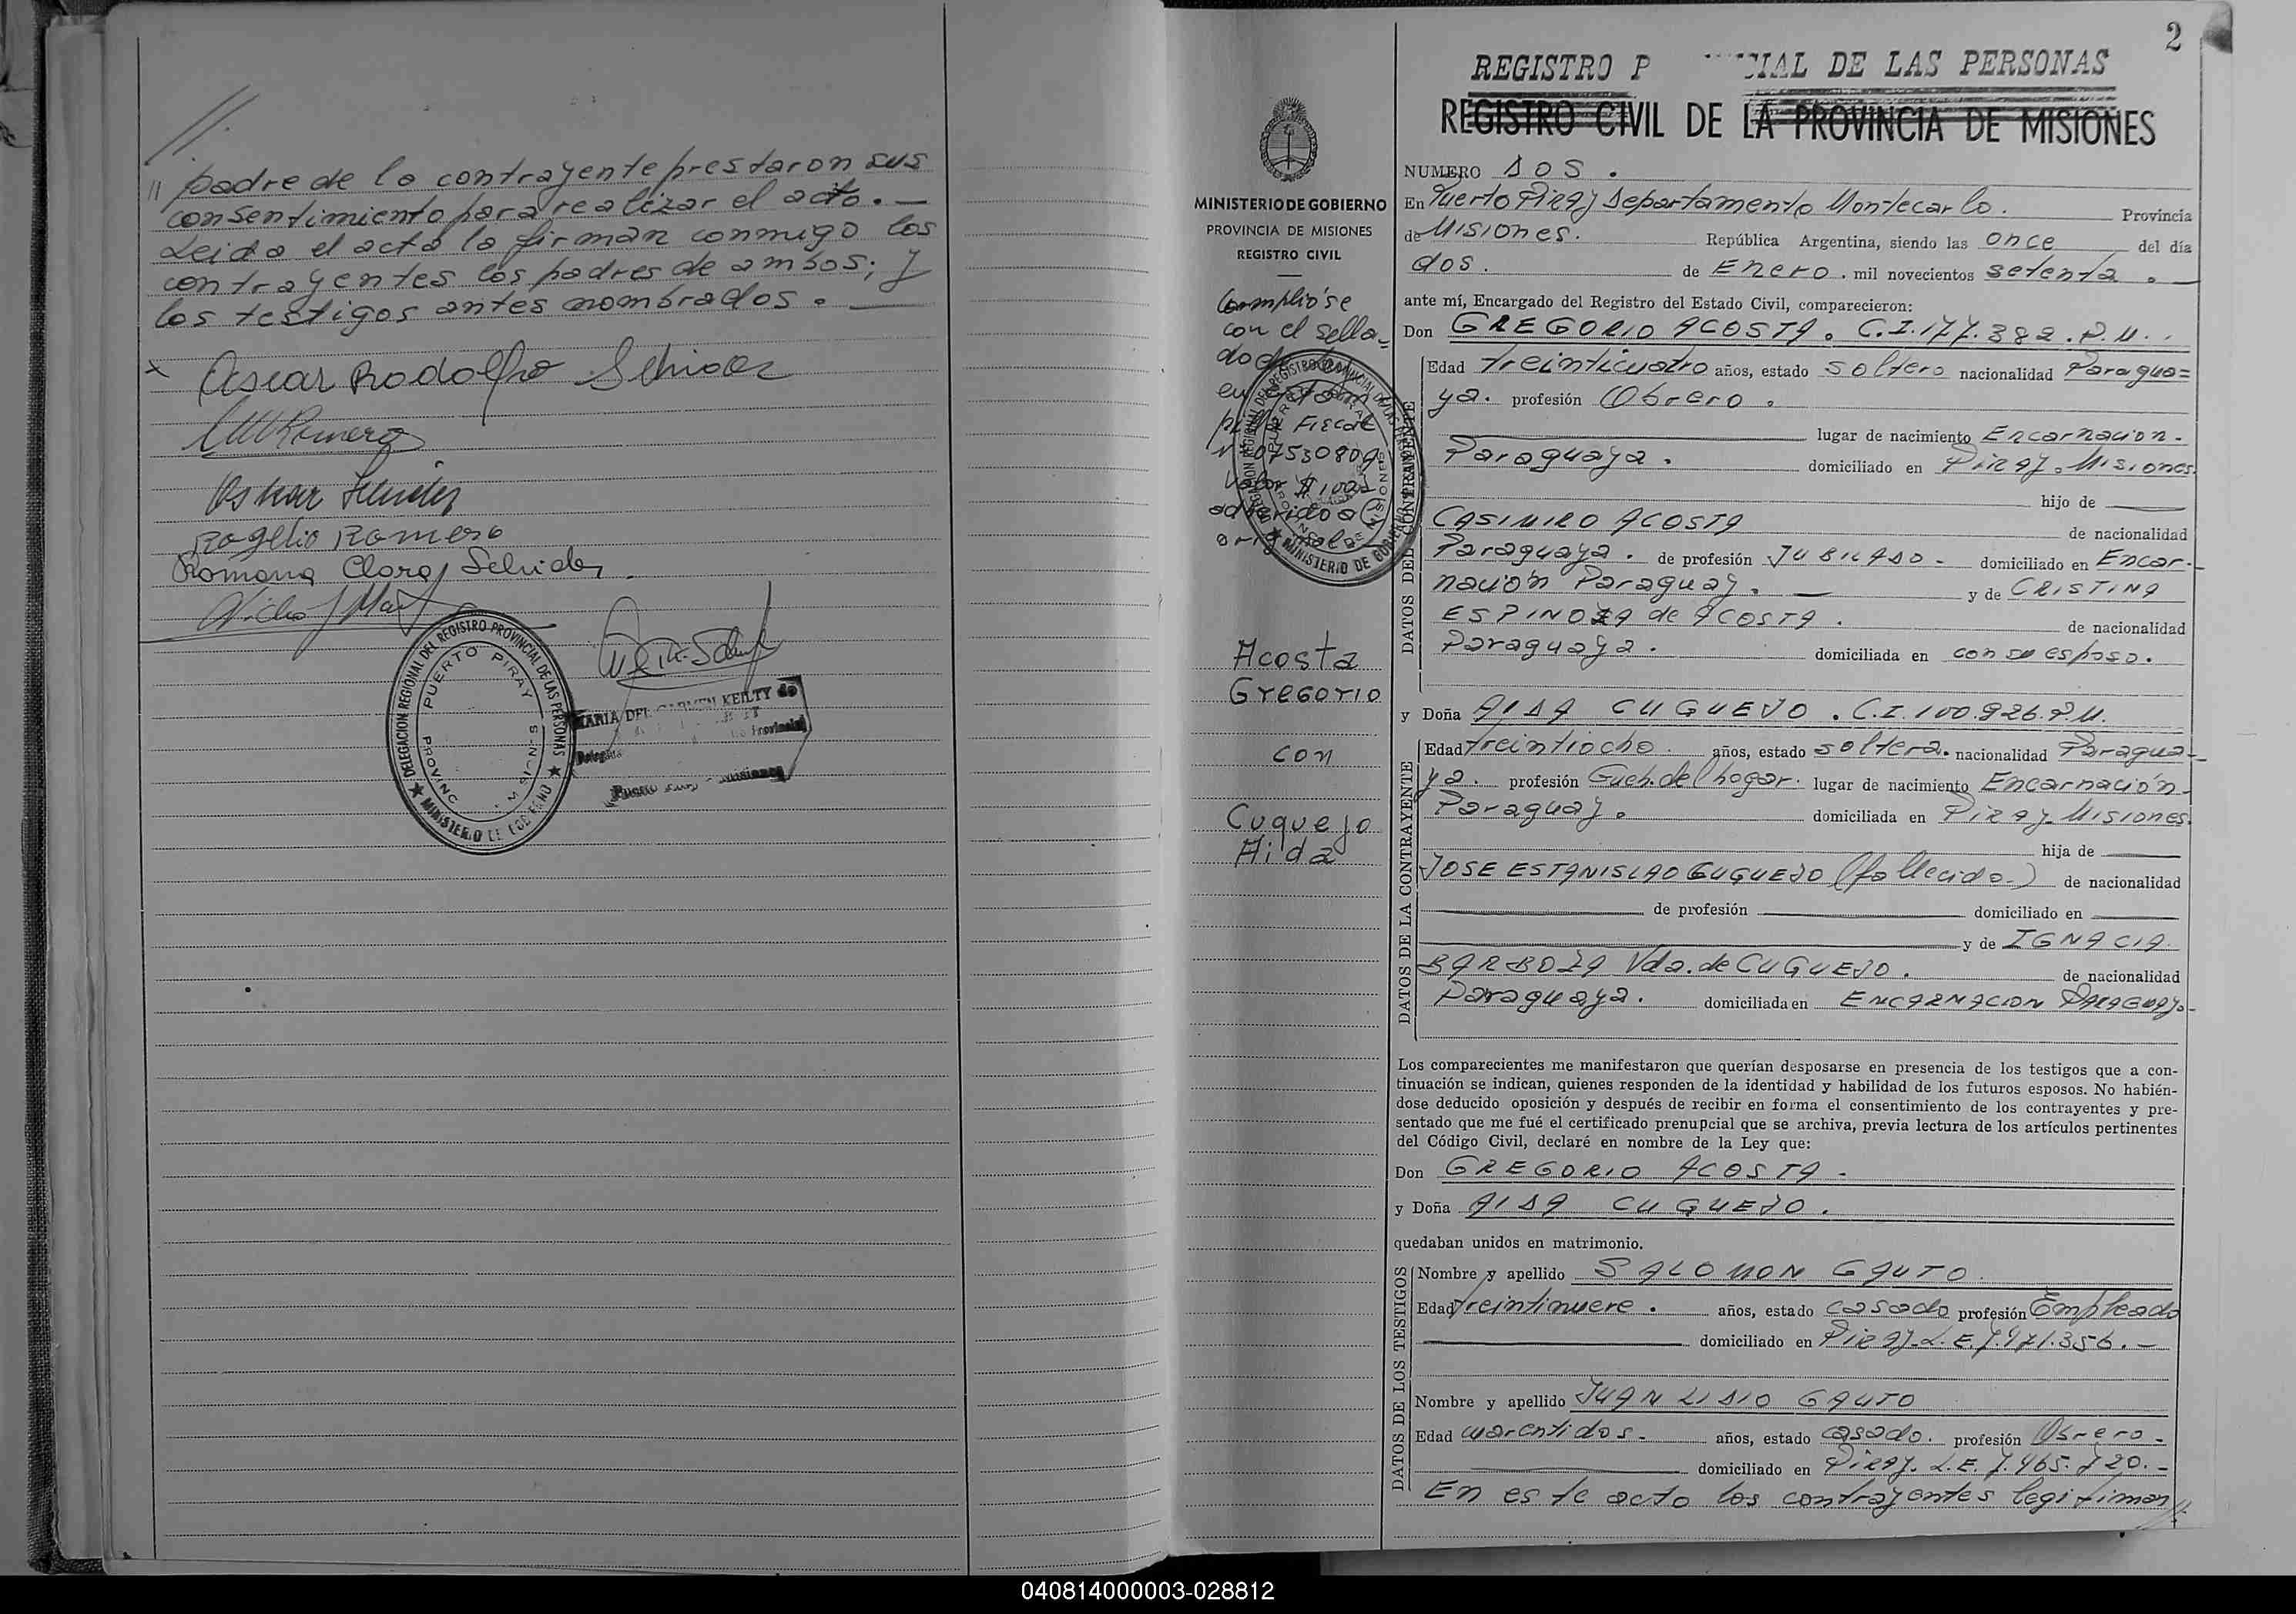 //.
// padre de la contrayente prestaron sus
consentimiento para realizar el acto. —
Leida el acta la firman conmigo los
contrayentes los padres de ambos; y
los testigos antes nombrados. —
x Oscar Rodolfo
Romero
Rogelio Romero
Romana Clara
DELEGACION REGIONAL DEL REGISTRO PROVINCIAL DE LAS PERSONAS
PUERTO PIRAY
MINISTERIO DE GOBIERNO
MARIA DEL CARMEN KEILTY de
Puerto
2
REGISTRO P CIAL DE LAS PERSONAS
REGISTRO CIVIL DE LA PROVINCIA DE MISIONES
MINISTERIO DE GOBIERNO
PROVINCIA DE MISIONES
REGISTRO CIVIL
Cumplióse
con el sella=
do
Fiscal
N° 07530809
Valor $ 100
adherido al
original
MINISTERIO DE GOBIERNO
Acosta
Gregorio
con
Cuquejo
Aida
NUMERO DOS.
En Puerto Piray Departamento Montecarlo. Provincia
de Misiones. República Argentina, siendo las once del día
dos. de Enero. mil novecientos setenta. —
ante mí, Encargado del Registro del Estado Civil, comparecieron:
Don GREGORIO ACOSTA. C.I. 177.382. P.M..
DATOS DEL CONTRAYENTE
Edad treinticuatro años, estado soltero nacionalidad Paragua=
ya. profesión Obrero.
lugar de nacimiento Encarnacion.
Paraguaya. domiciliado en Piray. Misiones.
hijo de
CASIMIRO ACOSTA de nacionalidad
Paraguaya. de profesión JUBILADO - domiciliado en Encar-
nación Paraguay. — y de CRISTINA
ESPINOZA de ACOSTA. de nacionalidad
Paraguaya. domiciliada en con su esposo.
y Doña AIDA CUQUEJO. C.I. 100.926. P.M.
DATOS DE LA CONTRAYENTE
Edad treintiocho. años, estado soltera. nacionalidad Paragua-
ya. profesión Queh. del hogar. lugar de nacimiento Encarnación-
Paraguay. domiciliada en Piray. Misiones.
hija de
JOSE ESTANISLAO CUQUEJO (fallecido-) de nacionalidad
de profesión domiciliado en
y de IGNACIA
BARBOZA Vda. de CUQUEJO. de nacionalidad
Paraguaya. domiciliada en ENCARNACION PARAGUAY.-
Los comparecientes me manifestaron que querían desposarse en presencia de los testigos que a con-
tinuación se indican, quienes responden de la identidad y habilidad de los futuros esposos. No habién-
dose deducido oposición y después de recibir en forma el consentimiento de los contrayentes y pre-
sentado que me fué el certificado prenupcial que se archiva, previa lectura de los artículos pertinentes
del Código Civil, declaré en nombre de la Ley que:
Don GREGORIO ACOSTA -
y Doña AIDA CUQUEJO.
quedaban unidos en matrimonio.
DATOS DE LOS TESTIGOS
Nombre y apellido SALOMON GAUTO
Edad treintinueve. años, estado casado profesión Empleado
domiciliado en Piray. L.E. 7.471.356. —
Nombre y apellido JUAN LIDIO GAUTO
Edad cuarentidos - años, estado casado. profesión Obrero -
domiciliado en Piray. L.E. 7.465.720. -
En este acto los contrayentes legitiman //.
040814000003-028812